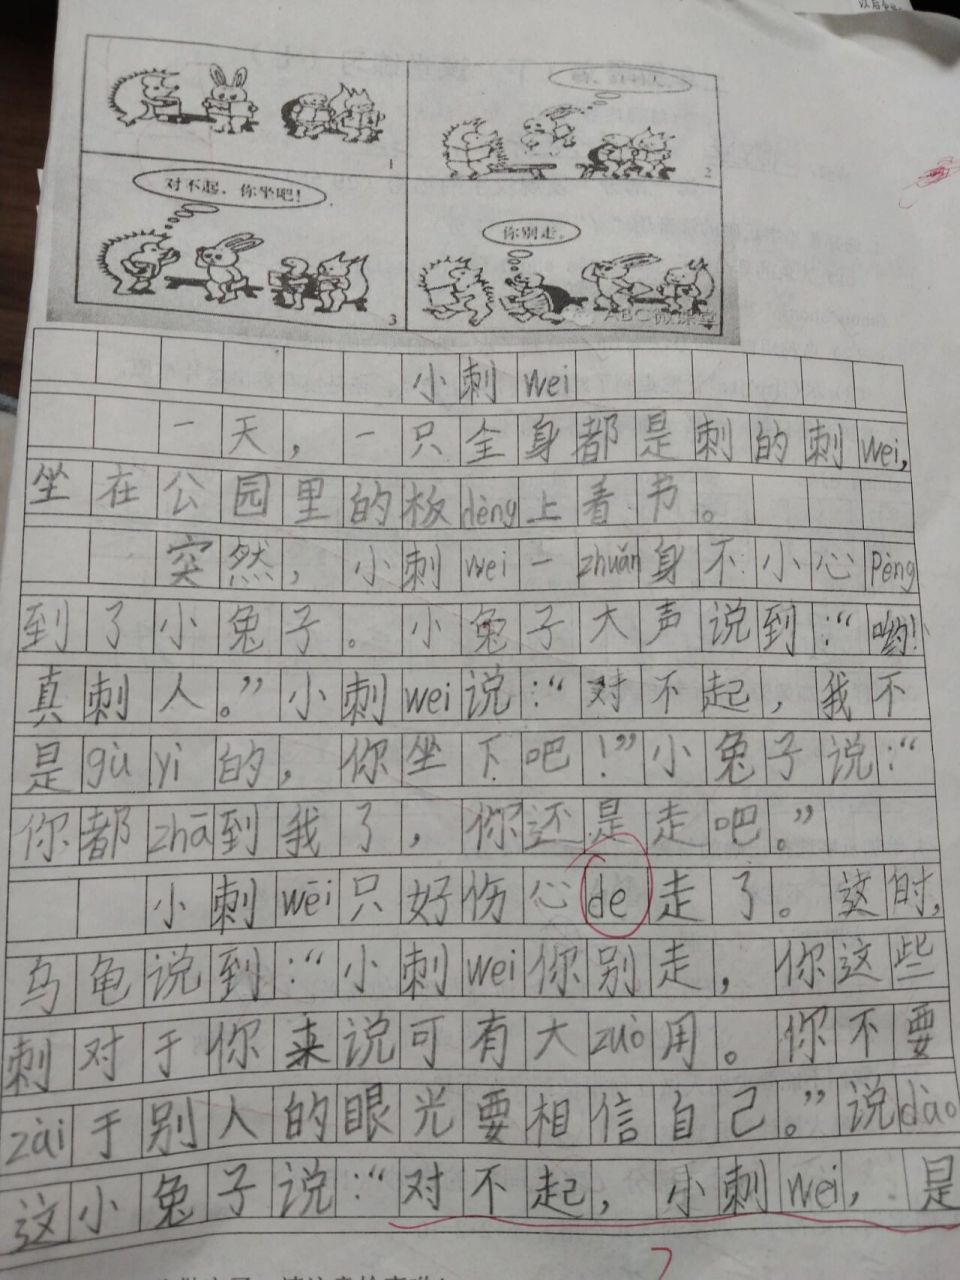 1
2
对不起，你坐吧！
3
你别走。
ABC微课堂
小刺wei
一天，一只全身都是刺的刺wei，
坐在公园里的板dèng上看书。
突然，小刺wei一zhuǎn身不小心pèng
到了小兔子。小兔子大声说到：“哟！
真刺人。”小刺wei说：“对不起，我不
是gù yì的，你坐下吧！”小兔子说：“
你都zhā到我了，你还是走吧。”
小刺wēi只好伤心de走了。这时，
乌龟说到：“小刺wei你别走，你这些
刺对于你来说可有大zuò用。你不要
zài于别人的眼光要相信自己。”说dào
这小兔子说：“对不起，小刺wei，是